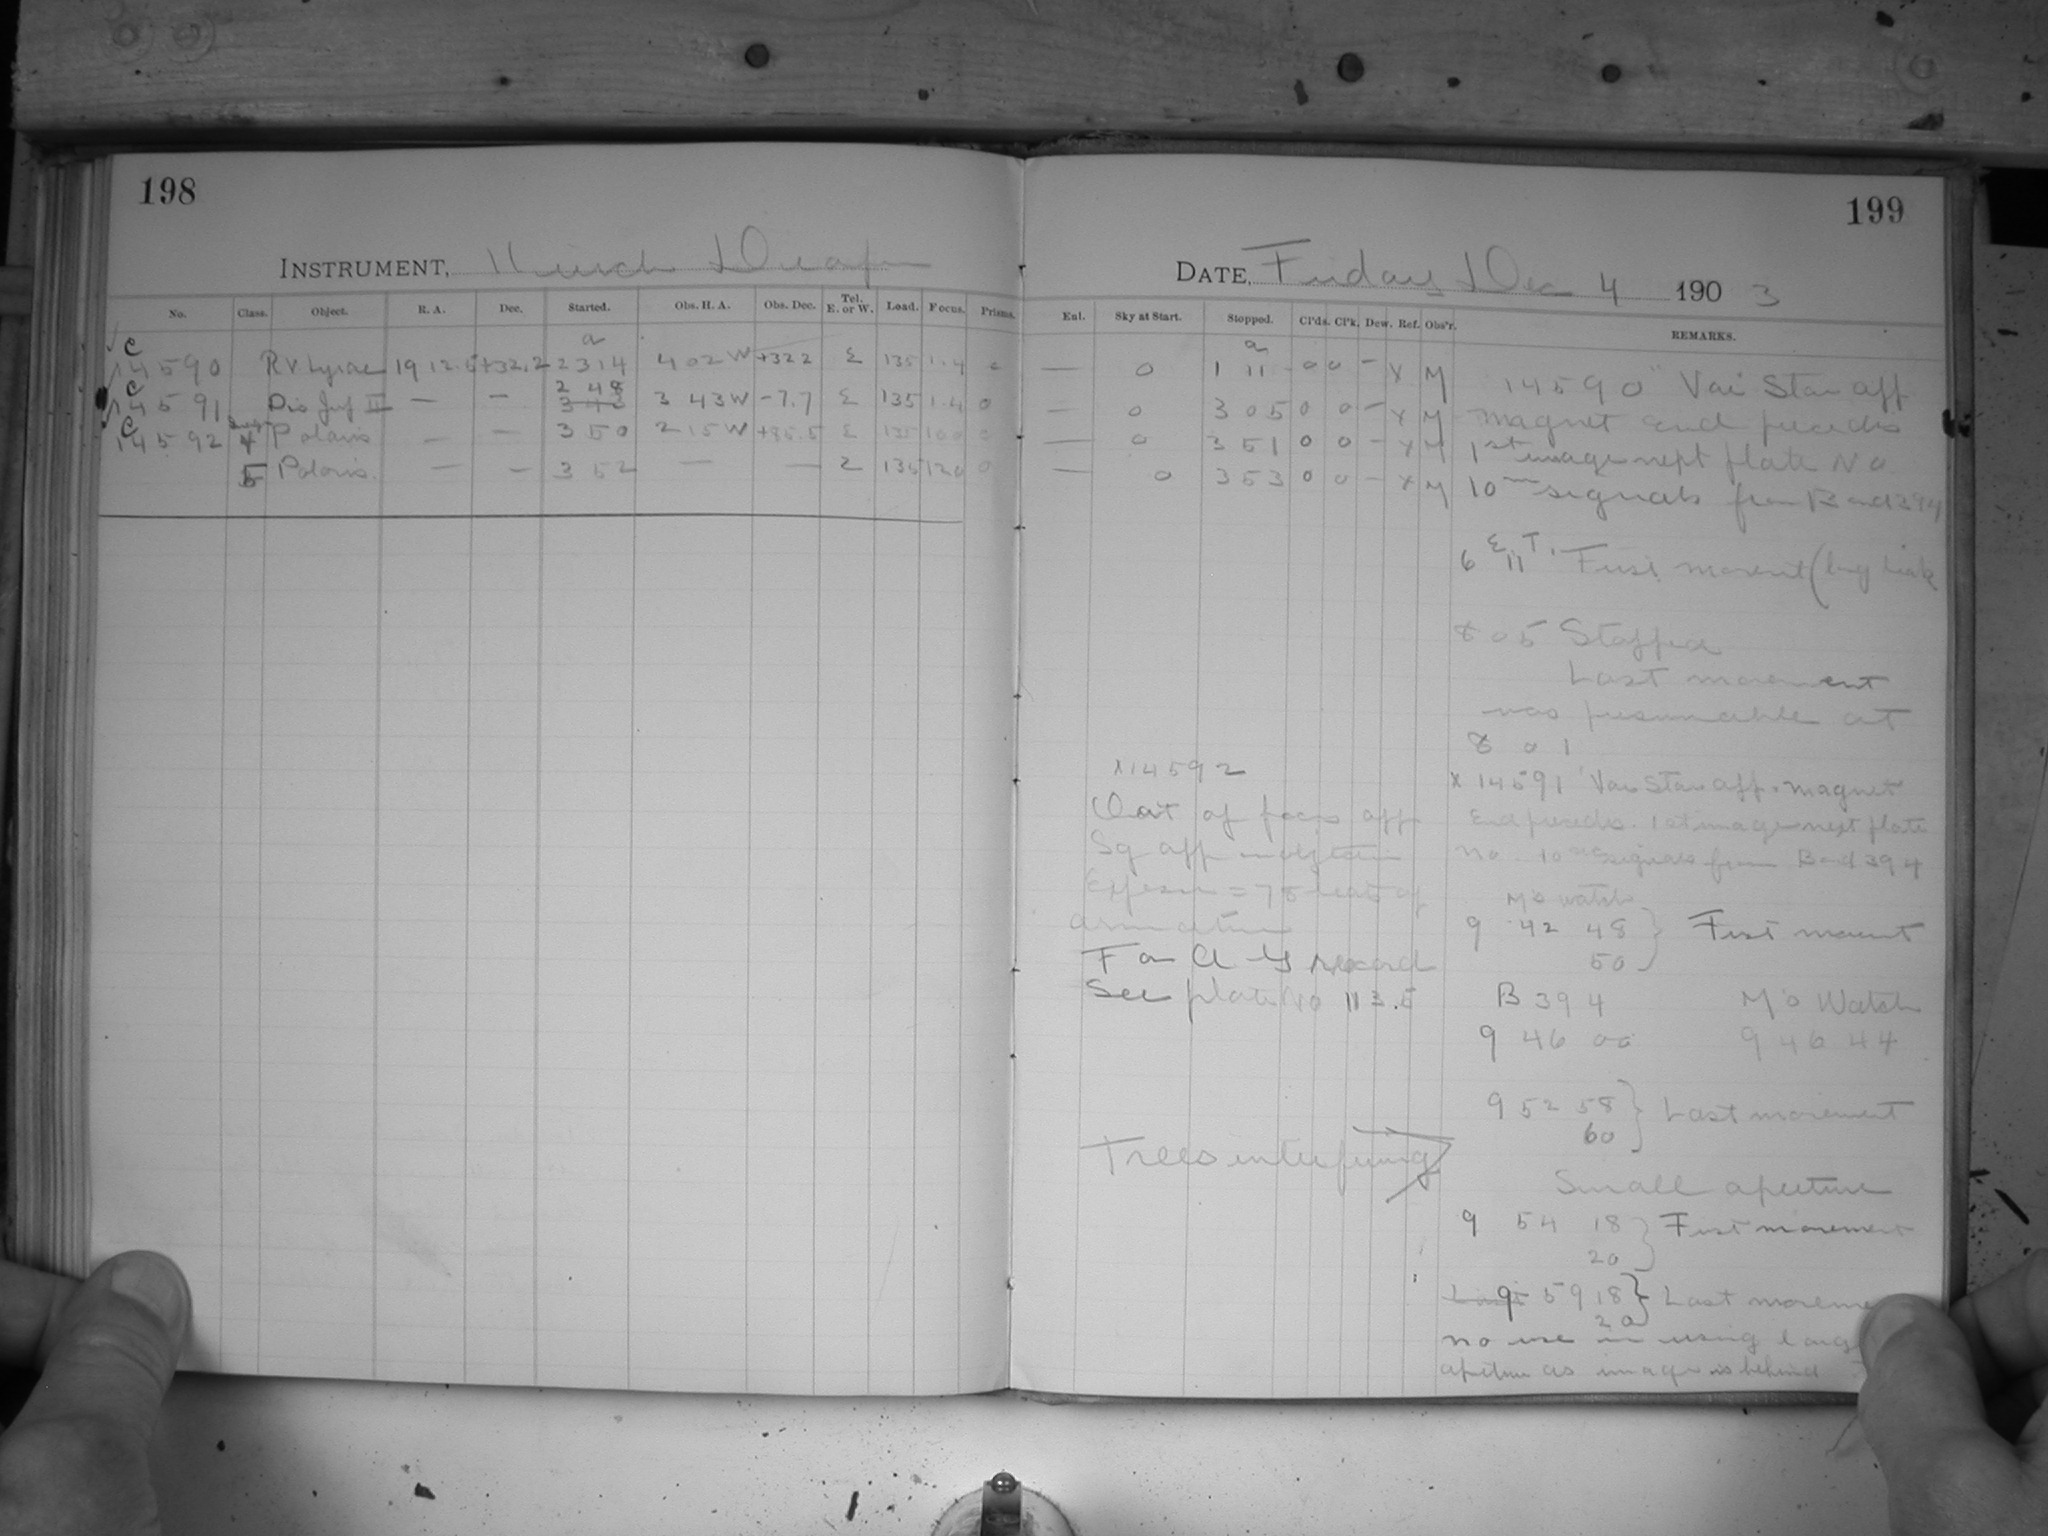 198
INSTRUMENT, 11 inch Draper
No. Class. Object. R. A. Dec. Started. Obs. H. A. Obs. Dec. Tel. E. or W. Load. Focus. Prisms.
a
C 14590 RV Lyrae 19 12.5 +32.2 23 14 4 02 W +32.2 E 135 1.4 0
2 48
C 14591 Dis Jup II — — 3 43 W -7.7 E 135 1.4 0
C 14592 4 Polaris — — 3 50 2 15 W +88.5 E 135 100 0
5 Polaris. — — 3 52 — — 135 120 0
199
DATE, Friday Dec 4 1903
Enl. Sky at Start. Stopped. Cl'ds. Cl'k. Dew. Ref. Obs'r. REMARKS.
a
— 0 1 11 0 0 — x M
0 3 05 0 0 — x M
— 0 3 51 0 0 — x M
— 0 3 53 0 0 — x M
14590 Var Star app
magnet end precedes
1st image next plate No
10 signals from Bond 394
E. T.
6 11 First movement (
8 05 Stopped
Last movement
was presumable at
8 01
x 14591 Var Star app. magnet
End precedes. 1st image next plate
No. 10 signals from Bond 394
M's watch
9 42 48 } First movement
50
B 394 M's Watch
9 46 00 9 46 44
9 52 58 } Last movement
60
Small aperture
9 54 18 } First movement
20
9 59 18 } Last moveme
20
no use in using large
aperture as image is behind
x14592
Out of focus app
Sq app
= 78 beats of
armature
For A G record
See plate No 113.5
Trees interfering